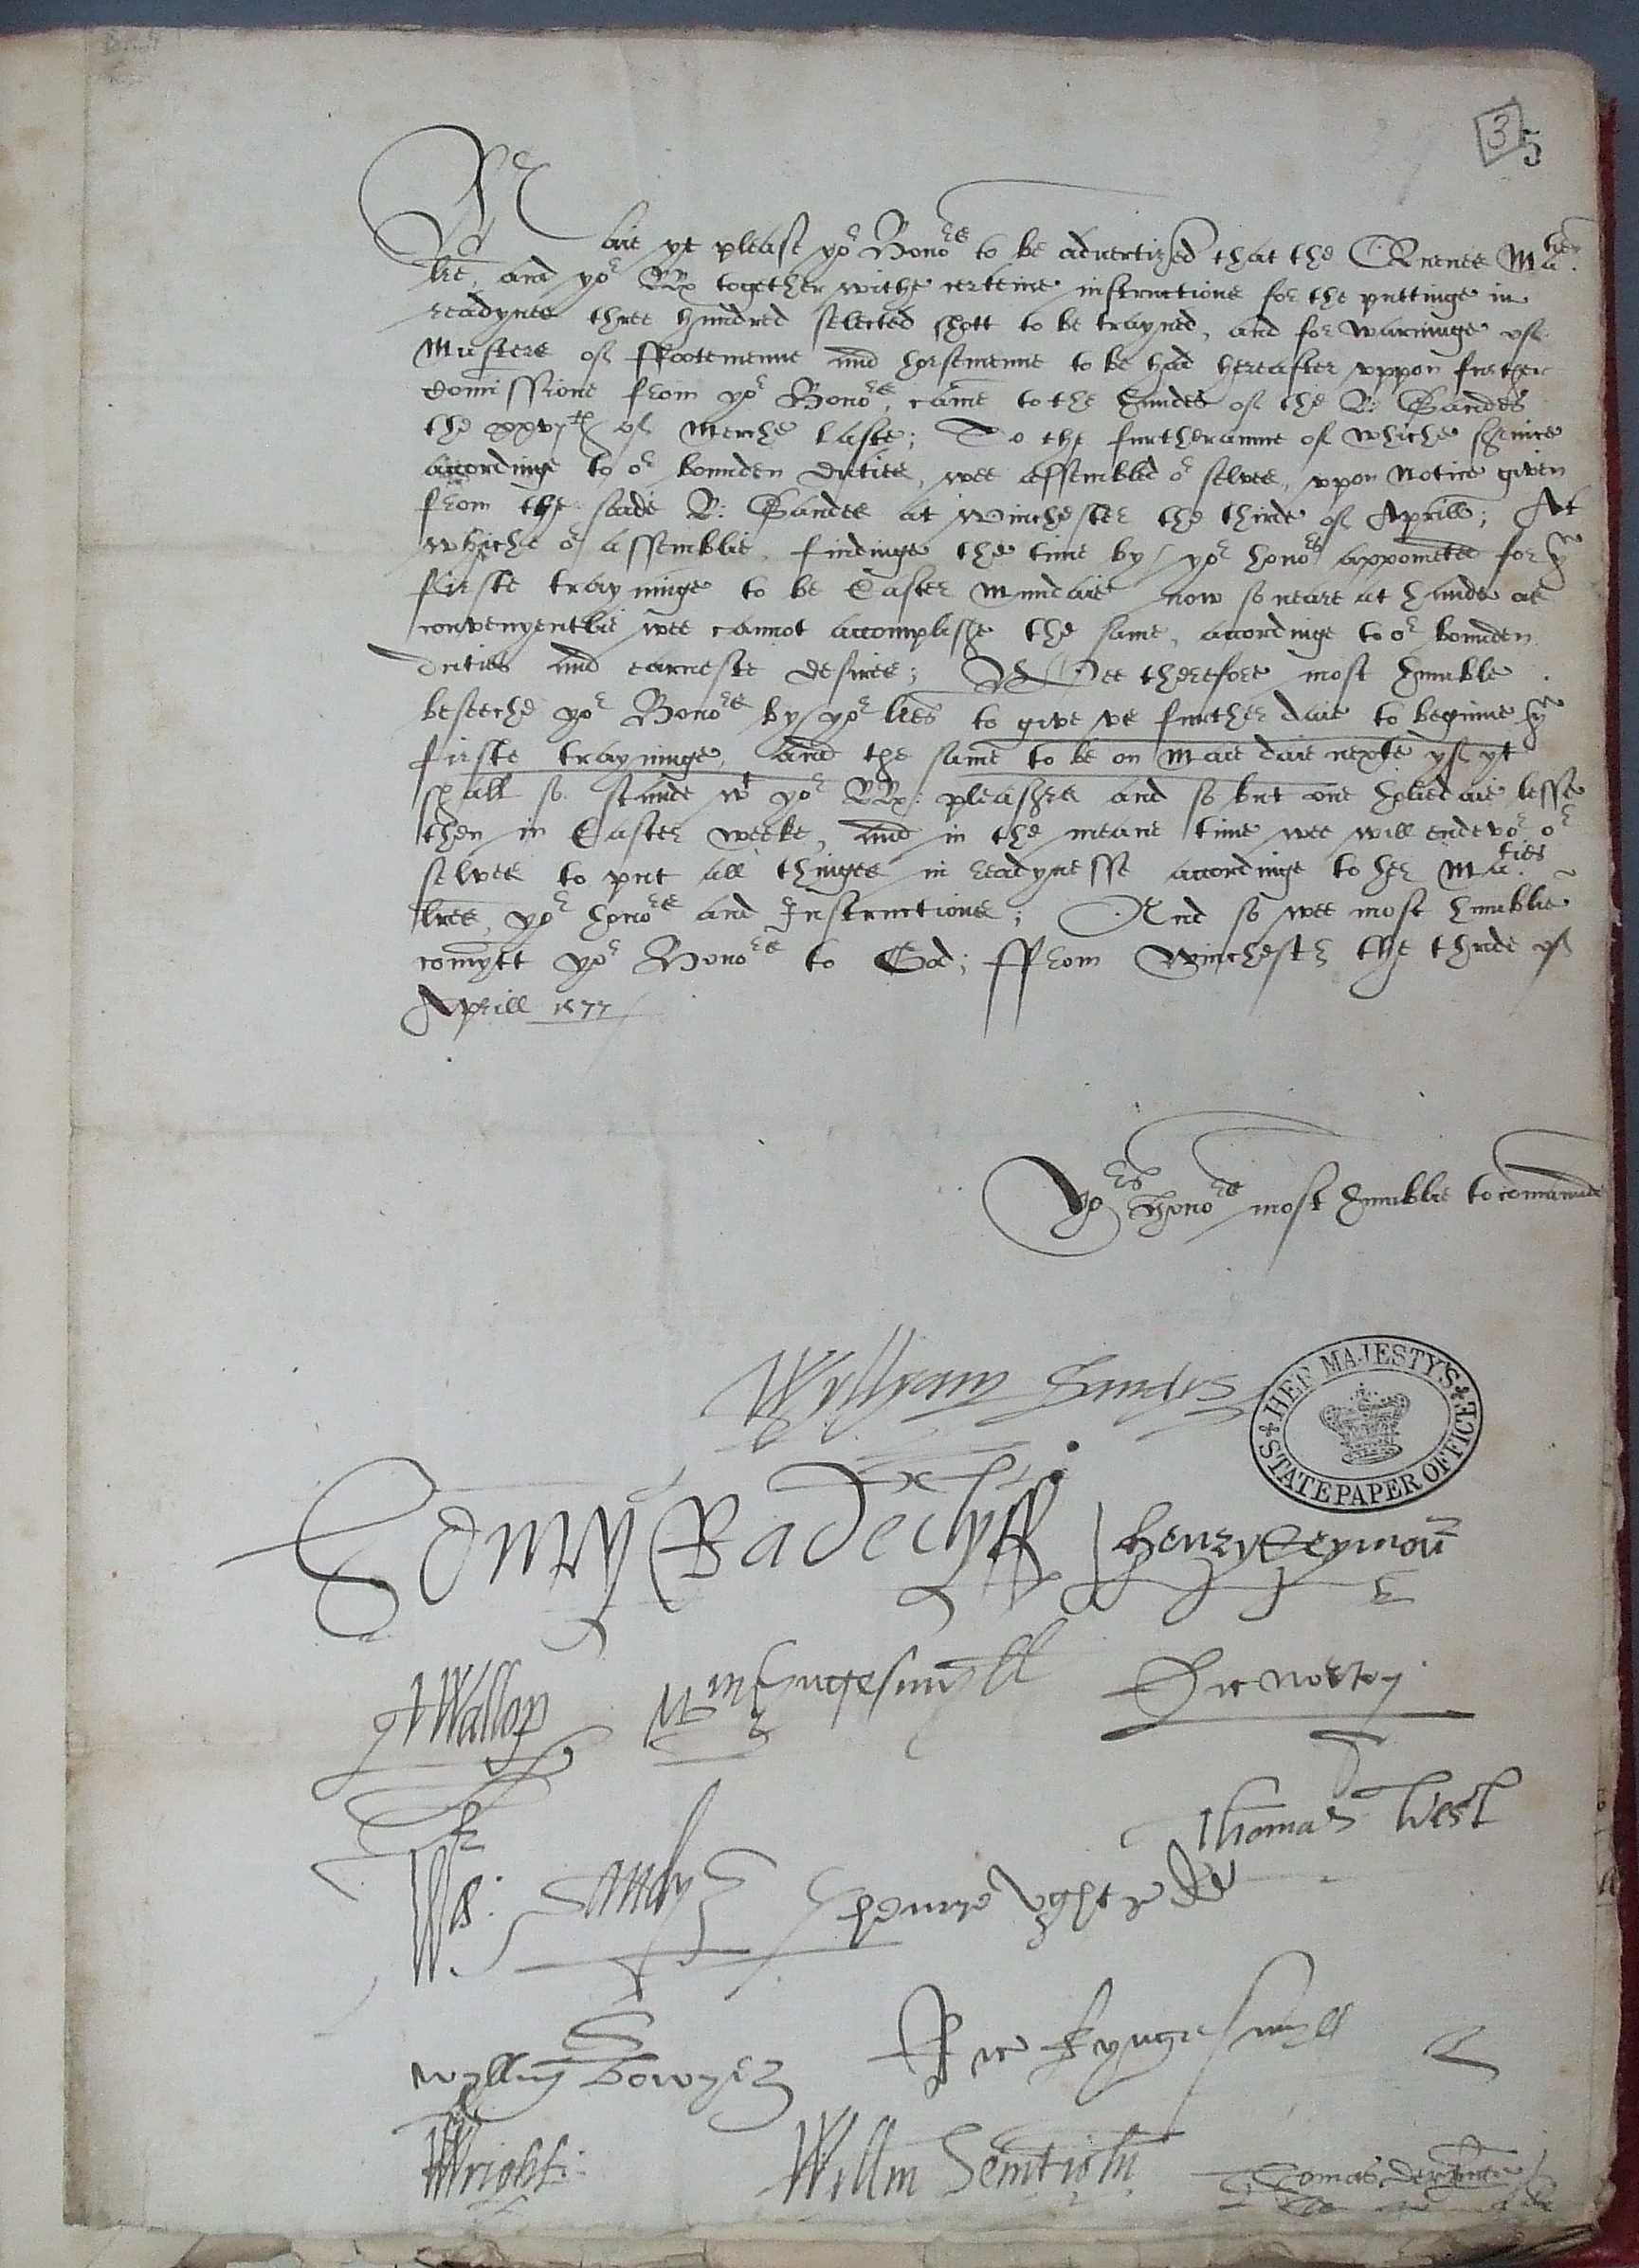 3
5
Maie yt please yor Honors to be advertized that the Quenes Maties
lre, and yor LLps together withe certeine instructions for the puttinge in
readynes three hundred selected shott to be trayned, and for warninge of
Musters of ffootemenne and horsemenne to be had hereafter uppon further
Comissione from yor Honors, came to the handes of the L: Sandes
the xxvjth of Merche laste; To the furtheraunce of whiche service
accordinge to or bounden duties, wee assembled or selves, upon notice given
from the saide L: Sandes at Winchester the thirde of Aprill; At
whiche or assemblie, findinge the time by yor honors appointed for ye
firste trayninge to be Easter Mundaie now so neare at hande as
convenyentlie wee cannot accomplishe the same, accordinge to or bounden
duties and earneste desires; Wee therefore most humble
beseeche yor Honors by yor lres to give us further daie to beginne ye
firste trayninge, and the same to be on Maie daie nexte yf yt
shall so stande wt yor LLps: pleasures and so but one holiedaie lesse
then in Easter weeke, and in the meane time wee will endevor or
selves to put all thinges in readynesse accordinge to her Maties
lres, yor honors and Instructions; And so wee most humblie
comytt yor Honors to God; ffrom Winchester the thirde of
Aprill 1577
Yors Honors most humblie to comaunde
Wyllyam Sandys
HER MAJESTY'S STATE PAPER OFFICE
Edmy Radeclyff Henry Seymour
H Wallop Wm Kyngesmyll Ric Norton
Thomas West
Wa: Sandys Henrye Ughtrede
Wyllm Bowyer Ric Kyngesmyll
Wright: Willm Seintjohn Thomas Dering